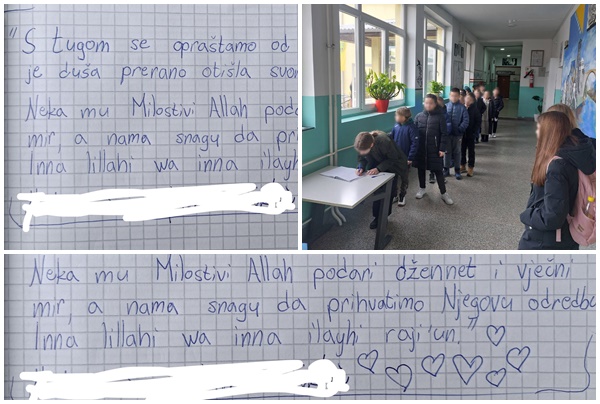 "S tugom se opraštamo od
je duša prerano otišla svom
Neka mu Milostivi Allah poda
mir, a nama snagu da pri
Inna lillahi wa inna ilayh
Neka mu Milostivi Allah podari džennet i vječni
mir, a nama snagu da prihvatimo Njegovu odredbu
Inna lillahi wa inna ilayhi raji'un."